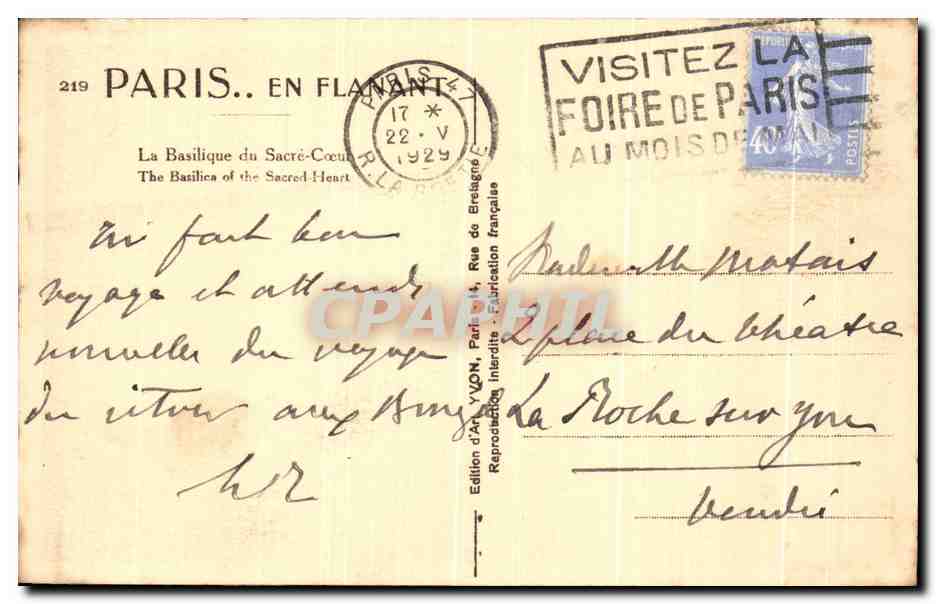 219 PARIS.. EN FLANANT
La Basilique du Sacré-Cœur
The Basilica of the Sacred-Heart
PARIS 47
17 *
22 · V
1929
R. LA BOETIE
VISITEZ LA
FOIRE DE PARIS
AU MOIS DE MAI
40
POSTES
fait bon
voyage et attends
nouvelles du voyage
du retour aux
Edition d'Art YVON, Paris - 14, Rue de Bretagne
Reproduction Interdite - Fabrication française
Mademoiselle
2 place du théatre
La Roche sur yon
Vendée
CPAPHIL